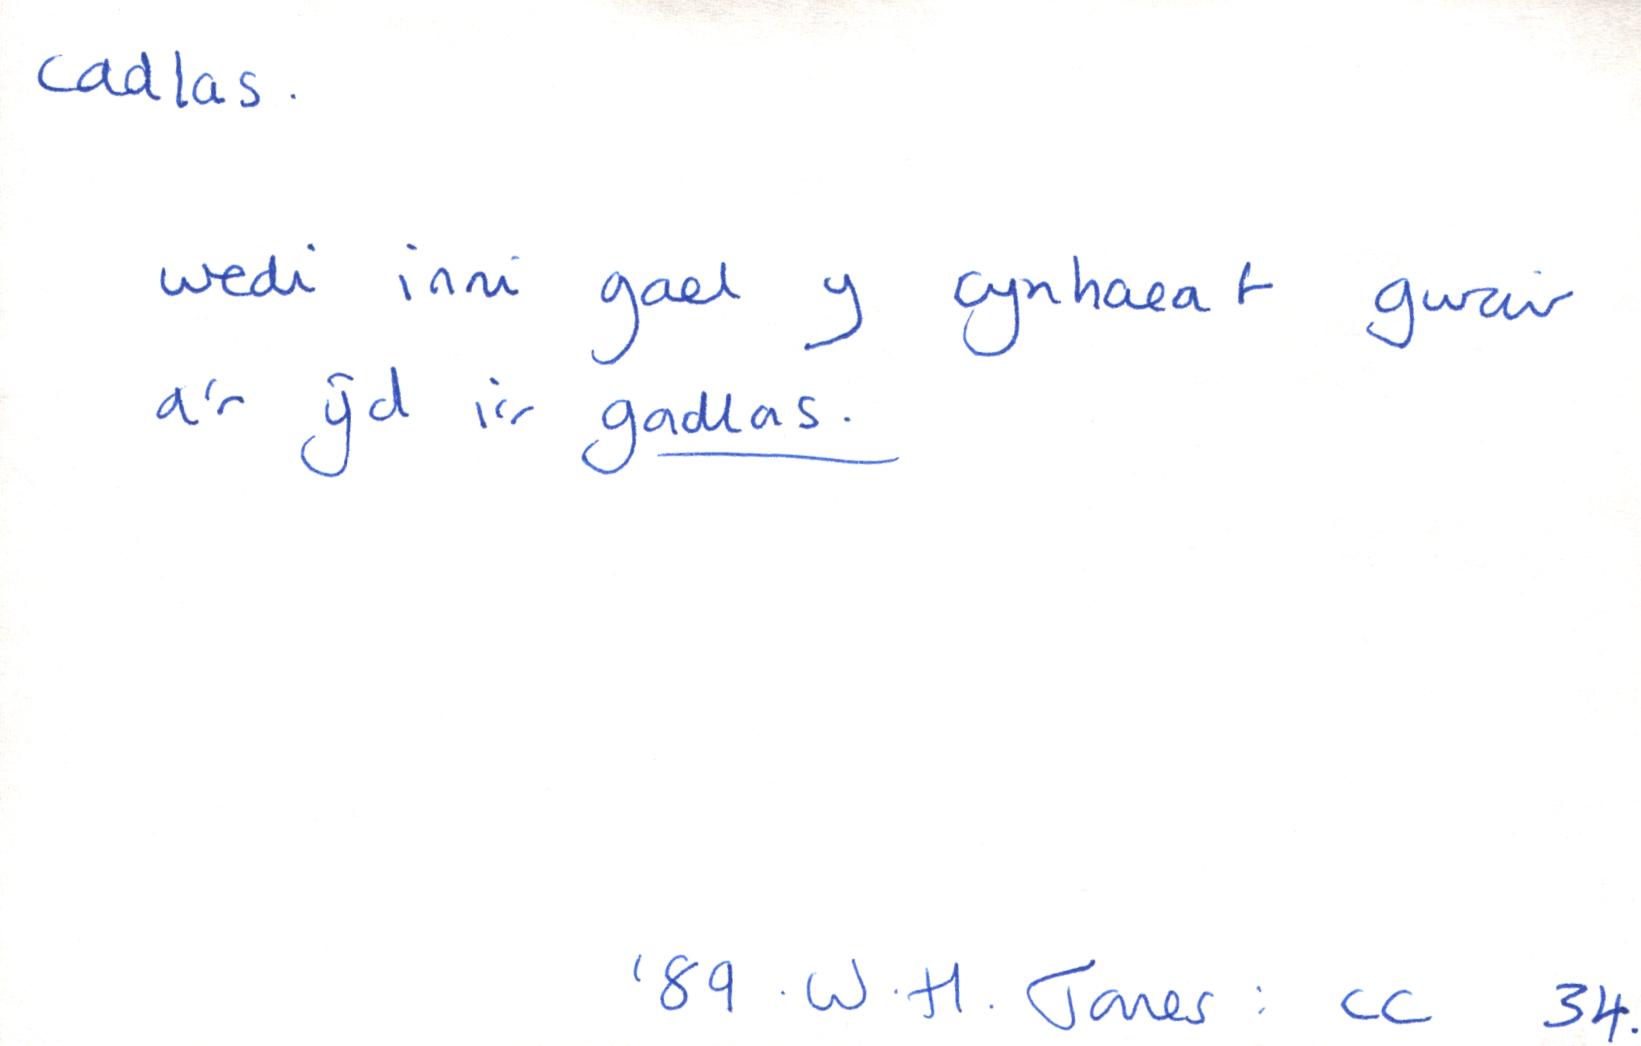 cadlas.
wedi inni gael y cynhaeaf gwair
a'r ŷd i'r gadlas.
'89. W. H. Jones: CC 34.